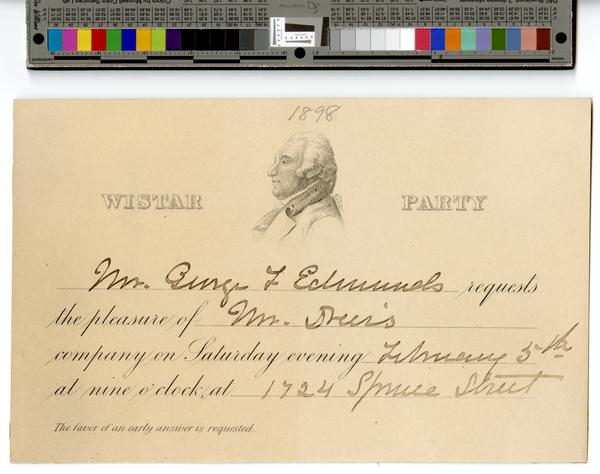 1898
WISTAR PARTY
Mr. George F Edmunds requests
the pleasure of Mr. Dreer's
company on Saturday evening February 5th
at nine o'clock, at 1724 Spruce Street
The favor of an early answer is requested.